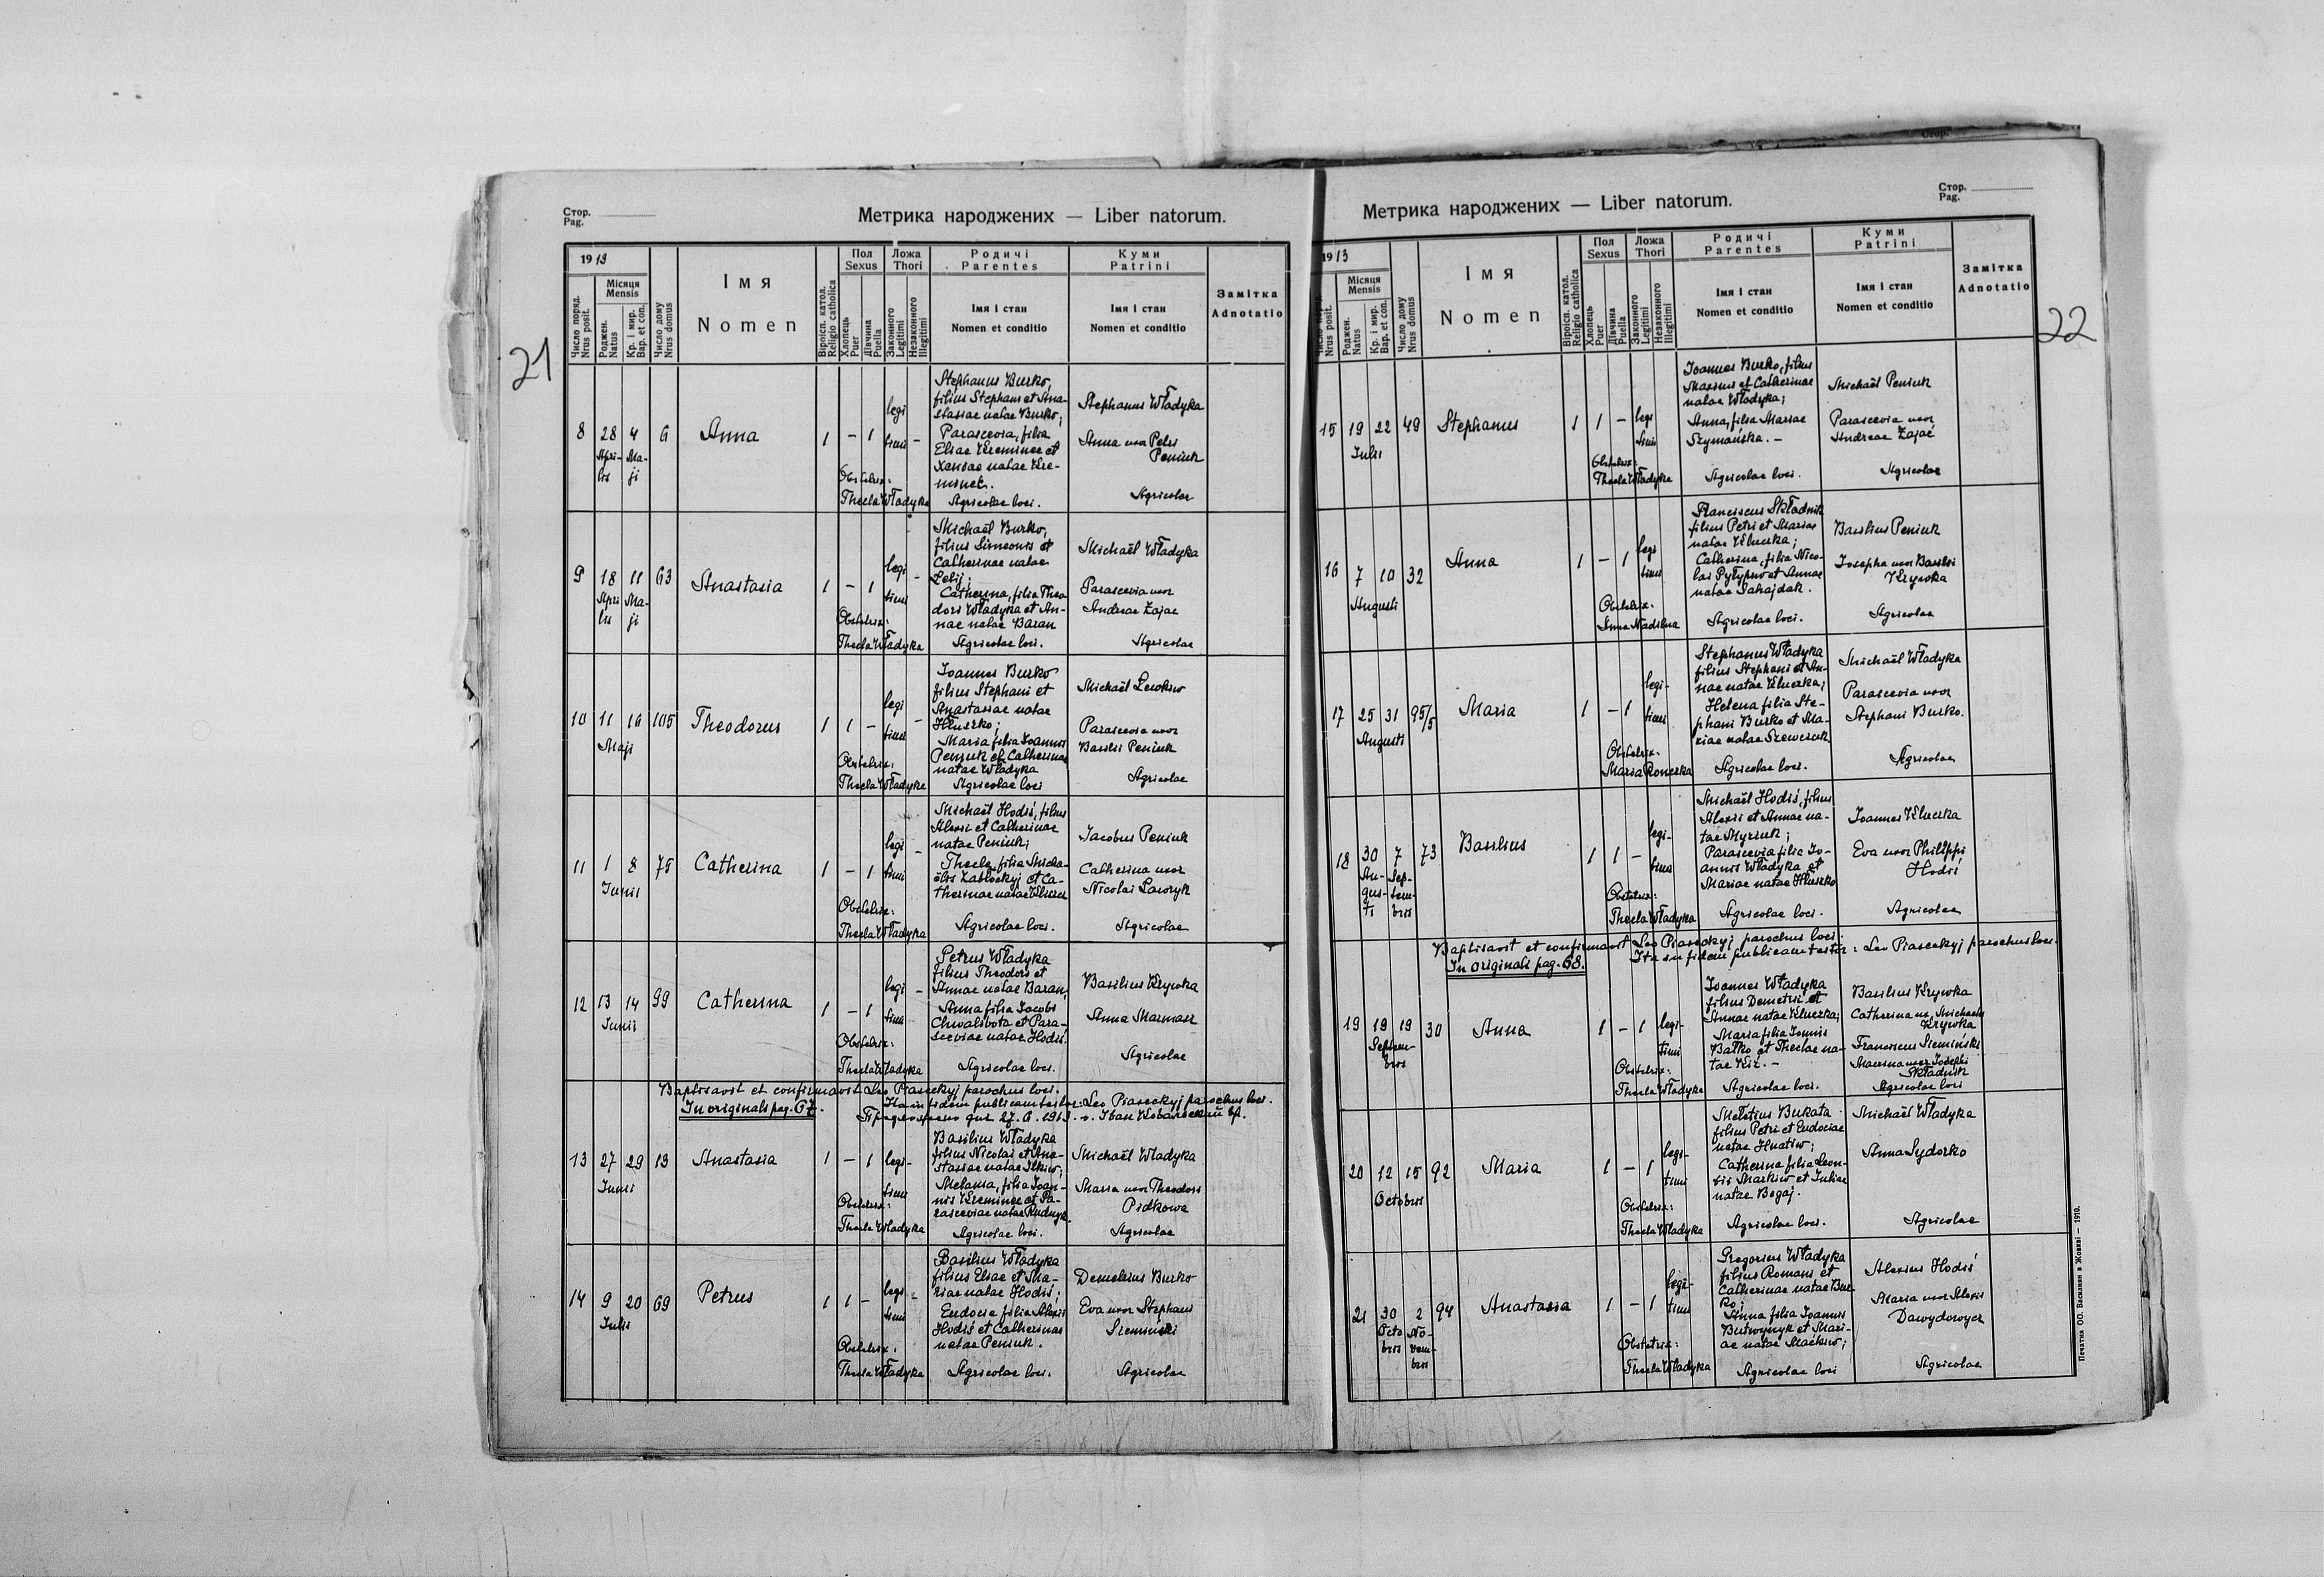 Стор.
Pag.
Метрика народжених — Liber natorum.
21
1913
Число поряд.
Nrus posit.
Місяця
Mensis
Роджен.
Natus
Кр. і мир.
Bap. et con.
Число дому
Nrus domus
Імя
Nomen
Віроісп. катол.
Religio catholica
Пол
Sexus
Хлопець
Puer
Дівчина
Puella
Ложа
Thori
Законного
Legitimi
Незаконного
Illegitimi
Родичі
Parentes
Імя і стан
Nomen et conditio
Куми
Patrini
Імя і стан
Nomen et conditio
Замітка
Adnotatio
8 28 Aprilis 4 Maji 6 Anna 1 – 1 legitimi –
Obstetrix:
Thecla Władyka
Stephanus Burko,
filius Stephani et Ana-
stasiae natae Burko;
Parascevia, filia
Eliae Kreminec et
Xeniae natae Kre-
minec.
Agricolae loci.
Stephanus Władyka
Anna uxor Petri
Peniuk
Agricolae
9 18 Aprilis 11 Maji 63 Anastasia 1 – 1 legitimi –
Obstetrix:
Thecla Władyka
Michaël Burko,
filius Simeonis et
Catherinae natae
Catherina, filia Theo-
dori Władyka et An-
nae natae Baran
Agricolae loci.
Michaël Władyka
Parascevia uxor
Andreae Zajac
Agricolae
10 11 16 Maji 105 Theodorus 1 1 – legitimi –
Obstetrix:
Thecla Władyka
Joannes Burko
filius Stephani et
Anastasiae natae
Hłuszko;
Maria filia Joannis
Peniuk et Catherinae
natae Władyka
Agricolae loci
Michaël Lewkiw
Parascevia uxor
Basilii Peniuk
Agricolae
11 1 8 Junii 75 Catherina 1 – 1 legitimi –
Obstetrix:
Thecla Władyka
Michaël Hodiś, filius
Alexii et Catherinae
natae Peniuk;
Thecla, filia Micha-
ëlis Zabłockyj et Ca-
therinae natae
Agricolae loci.
Jacobus Peniuk
Catherina uxor
Nicolai Ławryk
Agricolae
12 13 14 Junii 99 Catherina 1 – 1 legitimi –
Obstetrix:
Thecla Władyka
Petrus Władyka
filius Theodori et
Annae natae Baran,
Anna filia Jacobi
Chwalibota et Para-
sceviae natae Hodiś.
Agricolae loci.
Basilius Krywka
Anna Marmasz
Agricolae
Baptisavit et confirmavit Leo Piaseckyj parochus loci.
In originali pag. 67.
Ita in fidem publicam testor: Leo Piaseckyj parochus loci.
дня 27. 6. 1913.
13 27 29 Junii 13 Anastasia 1 – 1 legitimi
Obstetrix:
Thecla Władyka
Basilius Władyka
filius Nicolai et Ana-
stasiae natae Ilkiw;
Melania, filia Joan-
nis Kreminec et Pa-
rasceviae natae Rudnyk.
Agricolae loci.
Michaël Władyka
Maria uxor Theodori
Pidkowa
Agricolae
14 9 20 Julii 69 Petrus 1 1 – legitimi –
Obstetrix:
Thecla Władyka
Basilius Władyka
filius Eliae et Ma-
riae natae Hodiś;
Eudocia filia Alexii
Hodiś et Catherinae
natae Peniuk.
Agricolae loci.
Demetrius Burko
Eva uxor Stephani
Szemiński
Agricolae
Стор.
Pag.
Метрика народжених — Liber natorum.
22
1913
Число поряд.
Nrus posit.
Місяця
Mensis
Роджен.
Natus
Кр. і мир.
Bap. et con.
Число дому
Nrus domus
Імя
Nomen
Віроісп. катол.
Religio catholica
Пол
Sexus
Хлопець
Puer
Дівчина
Puella
Ложа
Thori
Законного
Legitimi
Незаконного
Illegitimi
Родичі
Parentes
Імя і стан
Nomen et conditio
Куми
Patrini
Імя і стан
Nomen et conditio
Замітка
Adnotatio
15 19 22 Julii 49 Stephanus 1 1 – legitimi
Obstetrix:
Thecla Władyka
Joannes Burko, filius
Maximi et Catherinae
natae Władyka;
Anna, filia Mariae
Szymańska. –
Agricolae loci.
Michaël Peniuk
Parascevia uxor
Andreae Zając
Agricolae
16 7 10 Augusti 32 Anna 1 – 1 legitimi
Obstetrix:
Franciscus Składnik
filius Petri et Mariae
natae Kluczka;
Catherina, filia Nico-
lai Pyłypiw et Annae
natae Sahajdak.
Agricolae loci.
Basilius Peniuk
Josepha uxor Basilii
Krywka
Agricolae
17 25 31 Augusti 95/5 Maria 1 – 1 legitimi
Obstetrix:
Maria Ronczka
Stephanus Władyka
filius Stephani et An-
nae natae Kluczka;
Helena filia Ste-
phani Burko et Ma-
riae natae Szewczuk
Agricolae loci.
Michaël Władyka
Parascevia uxor
Stephani Burko.
Agricolae
18 30 Augusti 7 Septembris 73 Basilius 1 1 – legitimi
Obstetrix:
Thecla Władyka
Michaël Hodiś, filius
Alexii et Annae na-
tae Myziuk;
Parascevia filia Jo-
annis Władyka et
Mariae natae Hłuszko
Agricolae loci.
Joannes Kluczka
Eva uxor Philippi
Hodiś
Agricolae
Baptisavit et confirmavit Leo Piaseckyj parochus loci.
In originali pag. 68.
Ita in fidem publicam testor: Leo Piaseckyj parochus loci.
19 19 19 Septembris 30 Anna 1 – 1 legitimi
Obstetrix:
Thecla Władyka
Joannes Władyka
filius Demetrii et
Annae natae Kluczka;
Maria filia Joannis
Bałko et Theclae na-
tae Kiź. –
Agricolae loci.
Basilius Krywka
Catherina ux. Michaelis
Krywka
Franciscus Siemiński
Marina uxor Josephi
Składnik
Agricolae loci
20 12 15 Octobris 92 Maria 1 – 1 legitimi
Obstetrix:
Thecla Władyka
Meletius Bukata
filius Petri et Eudociae
natae Hnatiw;
Catherina filia Leon-
tii Markiw et Juliae
natae Begaj.
Agricolae loci.
Michaël Władyka
Anna Sydorko
Agricolae
21 30 Octobris 2 Novembris 94 Anastasia 1 – 1 legitimi
Obstetrix:
Thecla Władyka
Gregorius Władyka
filius Romani et
Catherinae natae Bur-
ko;
Anna filia Joannis
Butwynyk et Mari-
ae natae Maćkiw;
Agricolae loci
Alexius Hodiś
Maria uxor Alexii
Dawydowycz
Agricolae
Печатня ОО. Василиян в Жовкві — 1910.